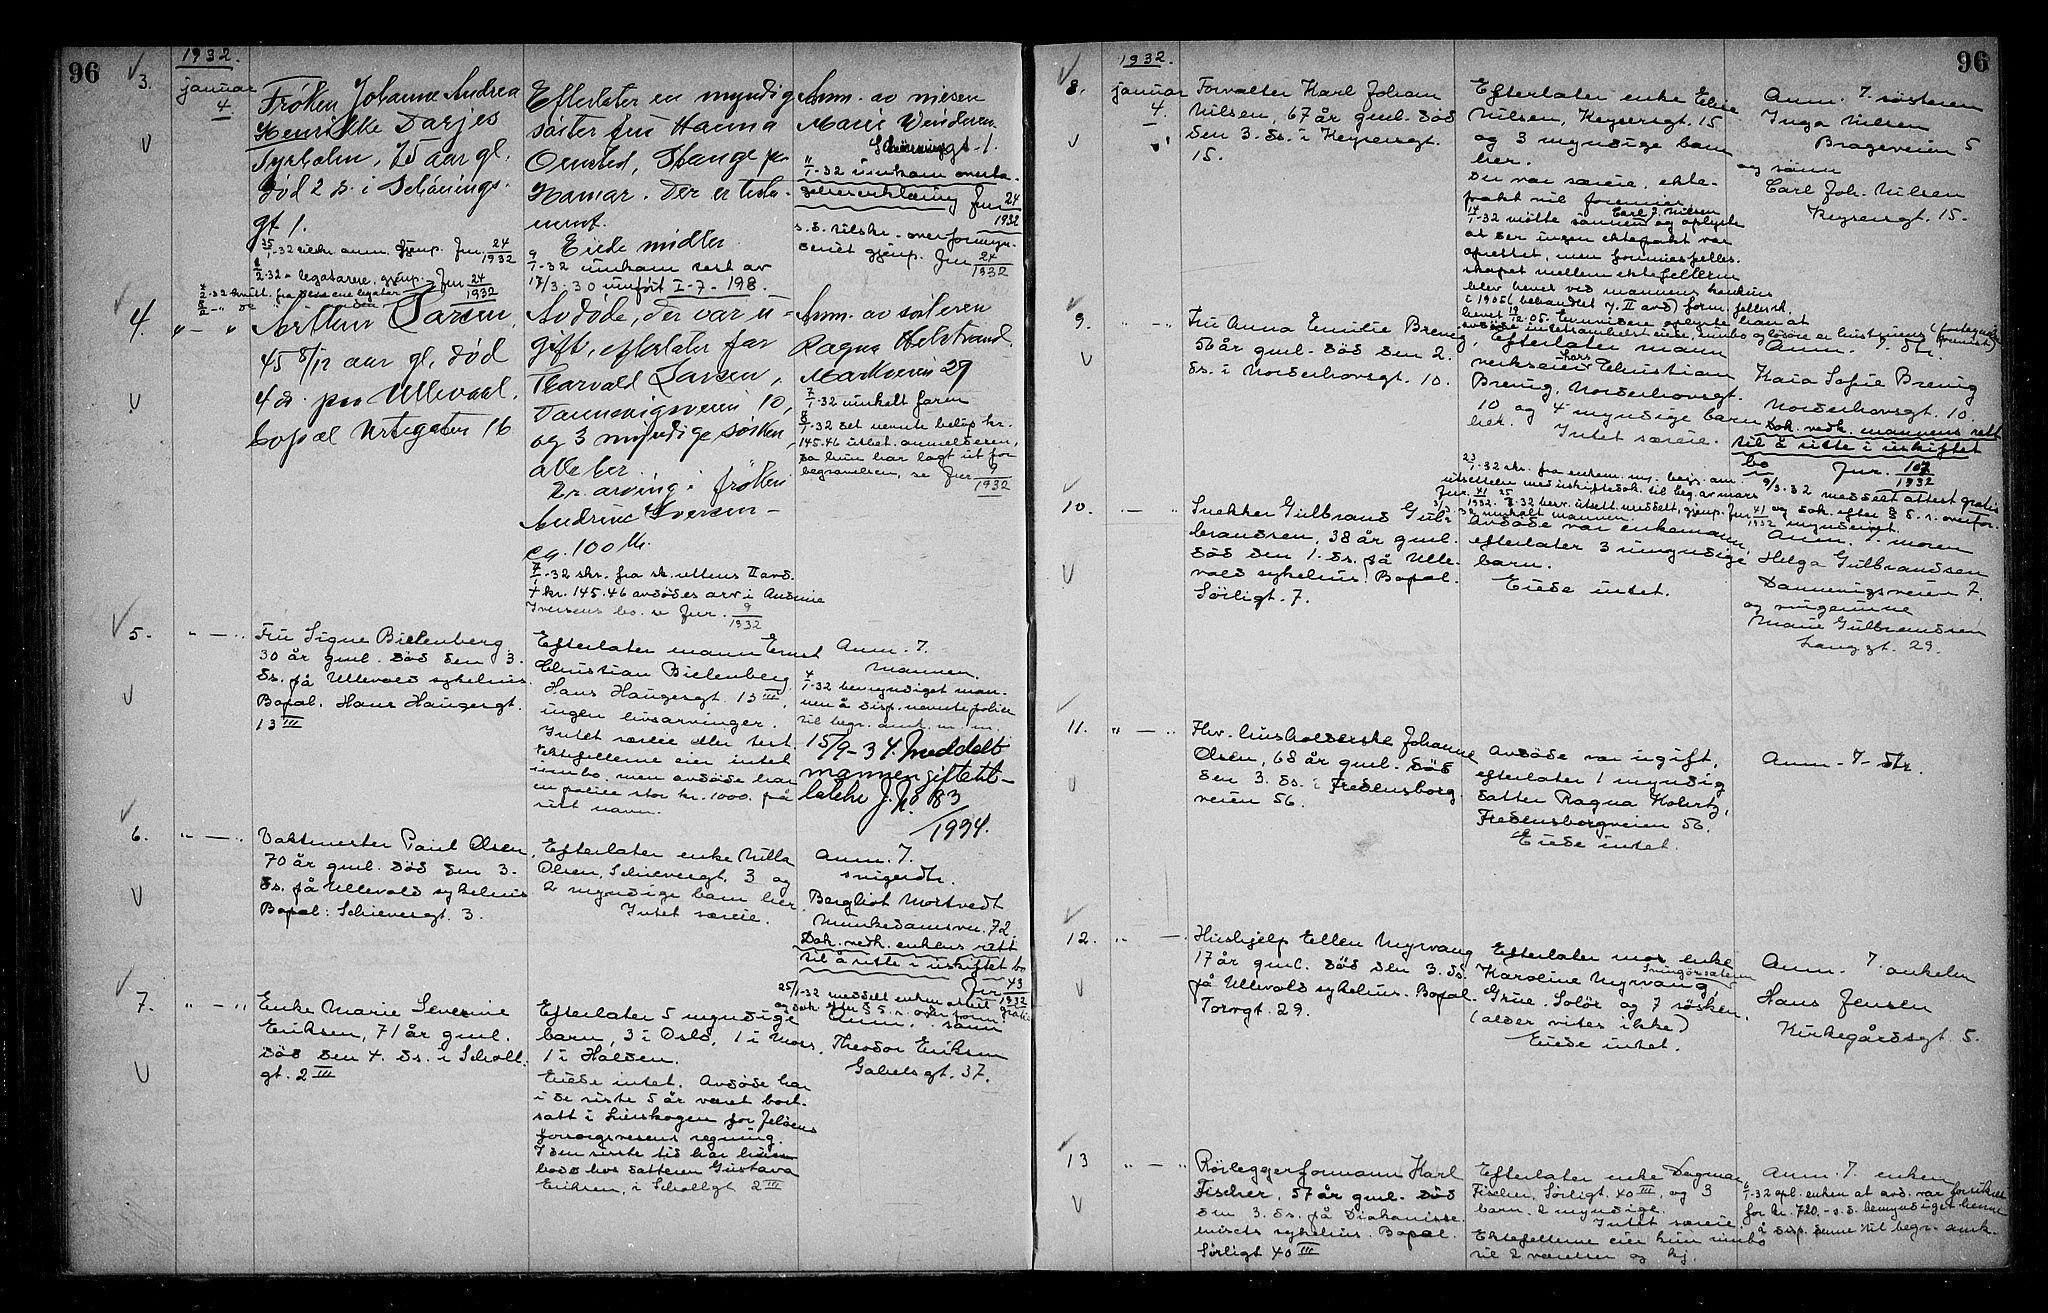 96
1932.
3.
januar
4
Frøken Johanne Andrea
Henrikke Darjes
Tyrholm, 75 aar gl.
død 2 ds. i Schønings-
gt 1.
Jnr 24/1932
Jnr 24/1932
Efterlater en myndig
søster fru Hanna
Onsted, Stange pr
Hamar. Der er testa-
ment.
Eiede midler
9/1-32 innkom test av
17/3-30 innført I-7-198.
Anm. av niesen
Marie Winderen
Schøningsgt. 1.
11/1-32 innkom overta-
gelseserklæring Jnr 24/1932
s.d. utskr. overformyn-
deriet gjenp. Jnr 24/1932
4.
" — "
Arthur Larsen
45 8/12 aar gl, død
4 ds. paa Ullevaal.
bopæl Urtegaten 16
Avdøde, der var u-
gift, efterlater far
Thorvald Larsen,
Dannevigsveien 10,
og 3 myndige søsken,
alle her.
Er arving i frøken
Andrine Iversen
ca. 100 kr.
7/1-32 skr. fra sk.rettens II avd.
kr. 145.46 avdødes arv i Andrine
Iversens bo. se Jnr. 9/1932
Anm. av søsteren
Ragna Helstrand
Markveien 29
7/1-32 innkalt faren
8/1-32 det nevnte beløp kr.
145.46 utbet. anmelderen,
da hun har lagt ut for
begravelsen, se Jnr 9/1932
5.
" — "
Fru Signe Bielenberg,
30 år gml. død den 3.
ds. på Ullevål sykehus
Bopæl. Hans Haugesgt.
13 III
Efterlater mann Ernst
Christian Bielenberg
Hans Haugesgt. 13 III,
ingen livsarvinger.
Intet særeie eller test.
Ektefellerne eier intet
innbo, men avdøde har
en police stor kr. 1000 på
sitt navn.
Anm. 7.
mannen.
4/1-32 bemyndiget man-
nen å disp. nevnte police
til begr. omk. m. m.
15/9-34. Meddelt
mannen giftetil-
latelse J. No 83
/1934.
6.
" — "
Vaktmester Paul Olsen,
70 år gml. død den 3.
ds. på Ullevål sykehus
Bopæl: Schivesgt. 3.
Efterlater enke Milla
Olsen, Schivesgt. 3 og
2 myndige barn her
Intet særeie.
Anm. 7.
svigerdtr.
Bergliot Mortvedt
Munkedamsvn. 72.
Dok. vedk. enkens rett
til å sitte i uskiftet bo
Jnr 43/1932
25/1-32 meddelt enken attest gratis
og dok. efter § 5. s. overform
7.
" — "
Enke Marie Severine
Eriksen, 71 år gml.
død den 4. ds. i Scholl.
gt. 2 III
Efterlater 5 myndige
barn, 3 i Oslo, 1 i Moss,
1 i Halden.
Eiede intet. Avdøde har
i de siste 5 år været bort-
satt i Lierskogen for Jeløens
forsorgsvesens regning.
I den siste tid har hun
bodd hos datteren Gustava
Eriksen, i Schollgt 2 III
Anm. 7. sønn
Theodor Eriksen
Gabelsgt. 37.
96
1932.
8.
januar
4.
Forvalter Karl Johan
Nilsen, 67 år gml. død
den 3. ds. i Keysersgt.
15.
Efterlater enke Elise
Nilsen, Keysersgt. 15
og 3 myndige barn
her.
Der var særeie, ekte-
pakt vil forevises
14/1-32 møtte sønnen Carl J. Nilsen og oplyste
at der ingen ektepakt var
oprettet, men formuesfelles-
skapet mellem ektefellerne
blev hevet ved mannens konkurs
i 1905 (behandlet 7. II avd) form. fellessk.
hevet 19/12.05.
Anm. 7. søsteren
Inga Nilsen
Brageveien 5
og sønn
Carl Joh. Nilsen
Keysersgt. 15.
9.
" — "
Fru Anna Emilie Brenig,
56 år gml. død den 2.
ds. i Norderhovsgt. 10.
Efterlater mann
verkseier Lars Christian
Brenig, Norderhovsgt.
10 og 4 myndige barn
her.
Intet særeie.
Anm. 7. dtr.
Kaia Sofie Brenig
Norderhovsgt. 10.
Dok. vedk. mannens rett
til å sitte i uskiftet
bo
Jnr. 107/1932
9/3-32 meddelt attest gratis
og dok. efter § 5. s. overfor-
mynderiet.
10.
" — "
Snekker Gulbrand Gul-
brandsen, 38 år gml.
død den 1. ds. på Ulle-
vål sykehus. Bopæl.
Sørligt. 7.
Avdøde var enkemann,
efterlater 3 umyndige
barn.
Eiede intet.
Anm. 7. moren
Helga Gulbrandsen
Dannevigsveien 7.
og svigerinne
Marie Gulbrandsen
Langgt. 29.
11.
" — "
Fhv. husholderske Johanne
Olsen, 68 år gml. død
den 3. ds. i Fredensborg-
veien 56.
Avdøde var ugift,
efterlater 1 myndig
datter Ragna Kohertz,
Fredensborgveien 56.
Eiede intet.
Anm. 7. dtr.
12.
" — "
Hushjelp Ellen Myrvang
17 år gml. død den 3. ds.
på Ullevål sykehus. Bopæl.
Torvgt. 29.
Efterlater mor enke
Karoline Myrvang,
Grue, Solør og 7 søsken.
(alder vites ikke)
Eiede intet.
Anm. 7. onkelen
Hans Jensen
Kirkegårdsgt. 5.
13
" — "
Rørleggerformann Karl
Fischer, 57 år gml. død
den 3. ds. på Diakonisse-
husets sykehus. Bopæl.
Sørligt 40 III
Efterlater enke Dagmar
Fischer, Sørligt. 40 III, og 3
barn. 2 myndige.
Intet særeie.
Ektefellerne eier kun innbo
til 2 værelser og kj.
Anm. 7. enken
6/1-32 opl. enken at avd. var forsikret
for kr. 720.- s.d. bemyndiget henne
å disp. denne til begr. omk.